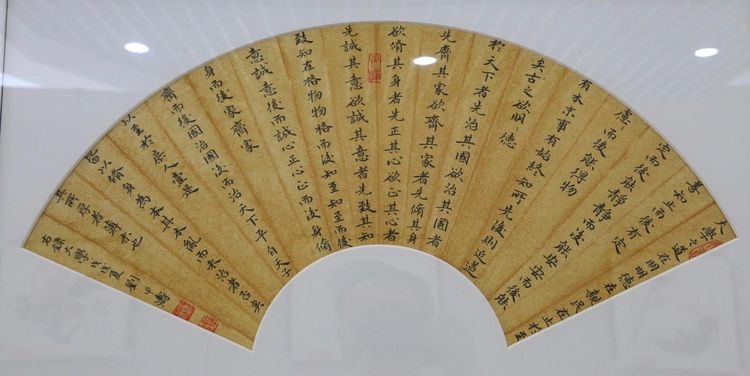 大學之道在明明德在親民在止於至
善知止而後有定
定而後能靜靜而後能安安而後能
慮〻而後能得物
有本末事有始終知所先後則近道
矣古之欲明〻德
於天下者先治其國欲治其國者
先齊其家欲齊其家者先脩其身
欲脩其身者先正其心欲正其心者
先誠其意欲誠其意者先致其知
致知在格物物格而後知至知至而後
意誠意後而誠心正心正而後身脩
身而後家齊家
齊而後國治國後而治天下平自天子
以至於庶人壹是
皆以脩身為本其本亂而末治者否矣
其所厚者薄未也
右錄大學戊戌夏劉